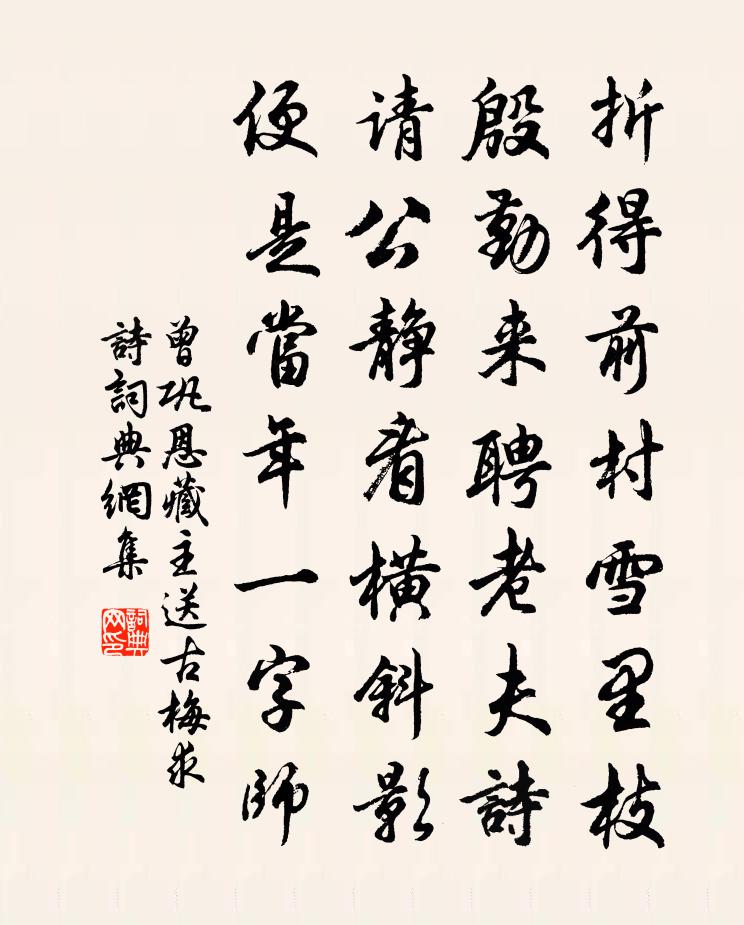 折得前村雪里枝
殷勤来聘老夫詩
请公静看橫斜影
便是當年一字師
曾巩恩藏主送古梅求
詩詞典網集
詞典网印